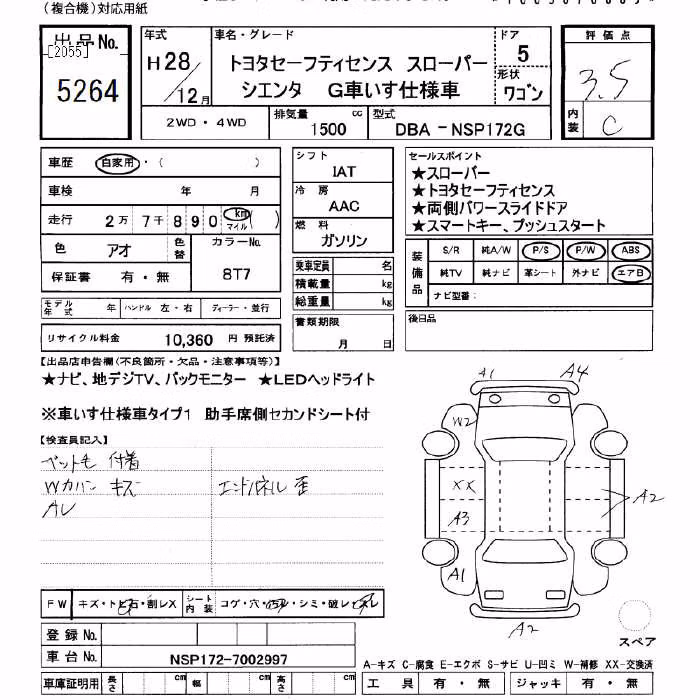 (複合機)対応用紙
出品No.
[2055]
5264
年式
H28/12月
車名・グレード
トヨタセーフティセンス スローパー
シエンタ G車いす仕様車
ドア
5
形状
ワゴン
評価点
3.5
内装
C
2WD・4WD
排気量
1500 cc
型式
DBA-NSP172G
車歴 自家用・( )
車検 年 月
走行 2万7千890 km マイル ( )
色 アオ 色替
カラーNo.
8T7
保証書 有・無
モデル年式 年
ハンドル 左・右
ディーラー・並行
リサイクル料金 10,360 円 預託済
シフト
IAT
冷房
AAC
燃料
ガソリン
乗車定員 名
積載量 kg
総重量 kg
書類期限
月 日
セールスポイント
★スローパー
★トヨタセーフティセンス
★両側パワースライドドア
★スマートキー、プッシュスタート
装備品
S/R 純A/W P/S P/W ABS
純TV 純ナビ 革シート 外ナビ エアB
ナビ型番:
後日品
【出品店申告欄(不良箇所・欠品・注意事項等)】
★ナビ、地デジTV、バックモニター ★LEDヘッドライト
※車いす仕様車タイプ1 助手席側セカンドシート付
【検査員記入】
ペット毛 付着
Wカバー キズ
エンドパネル 歪
AL
A1
A4
W2
XX
A3
A2
A1
A2
スペア
FW キズ・トビ石・割レX
シート内装 コゲ・穴・汚レ・シミ・破レ・スレ
登録No.
車台No. NSP172-7002997
車庫証明用 長さ cm 幅 cm 高さ cm
A-キズ C-腐食 E-エクボ S-サビ U-凹ミ W-補修 XX-交換済
工具 有・無 ジャッキ 有・無